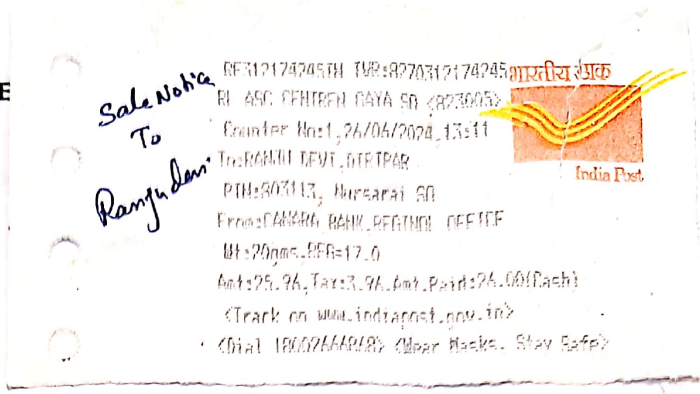 भारतीय डाक
India Post
Sale Notice
To
Ranju devi
RF312174245IN IVR:8270312174245
RL ASC CENTREN GAYA SO <823005>
Counter No:1,26/06/2024,13:11
To:RANJU DEVI,DIRIPAR
PIN:803113, Nursarai SO
From:CANARA BANK,REGINOL OFFICE
Wt:20gms,REG=17.0
Amt:25.96,Tax:3.96,Amt.Paid:26.00(Cash)
<Track on www.indiapost.gov.in>
<Dial 18002666868> <Wear Masks, Stay Safe>